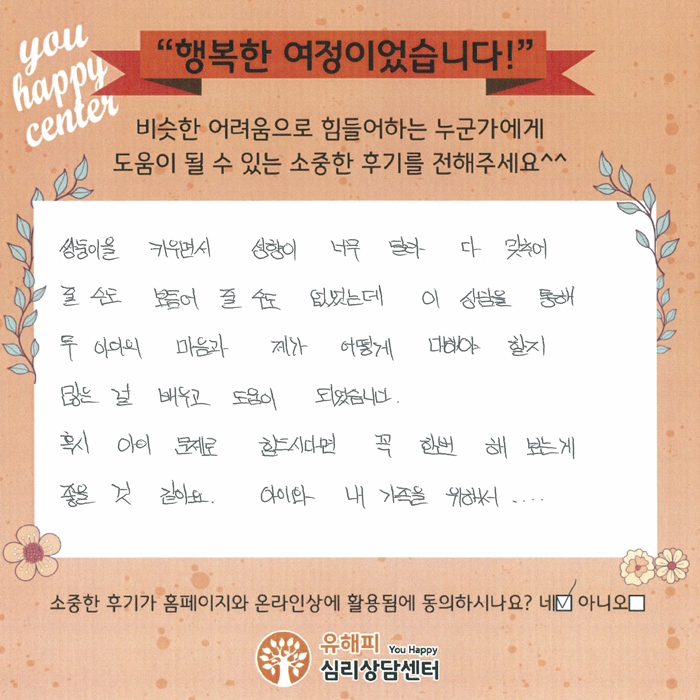 you
happy
center
“행복한 여정이었습니다!”
비슷한 어려움으로 힘들어하는 누군가에게
도움이 될 수 있는 소중한 후기를 전해주세요^^
쌍둥이을 키우면서 성향이 너무 달라 다 맞추어
줄 수도 보듬어 줄 수도 없었는데 이 상담을 통해
두 아이의 마음과 제가 어떻게 대해야 할지
많은 걸 배우고 도움이 되었습니다.
혹시 아이 문제로 힘드시다면 꼭 한번 해 보는게
좋을 것 같아요. 아이와 내 가족을 위해서 ....
소중한 후기가 홈페이지와 온라인상에 활용됨에 동의하시나요? 네☑ 아니오☐
유해피 You Happy
심리상담센터